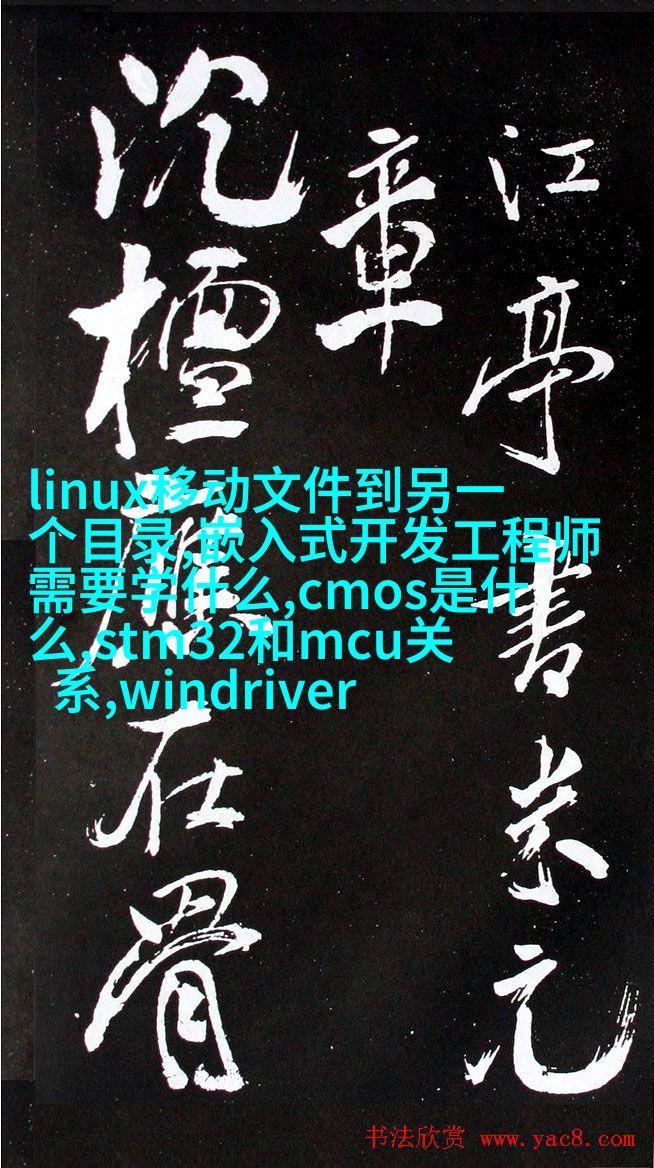 江亭書米元
章
沉檀應在骨
linux移动文件到另一
个目录,嵌入式开发工程师
需要学什么,cmos是什
么,stm32和mcu关
系,windriver
书法欣赏 www.yac8.com